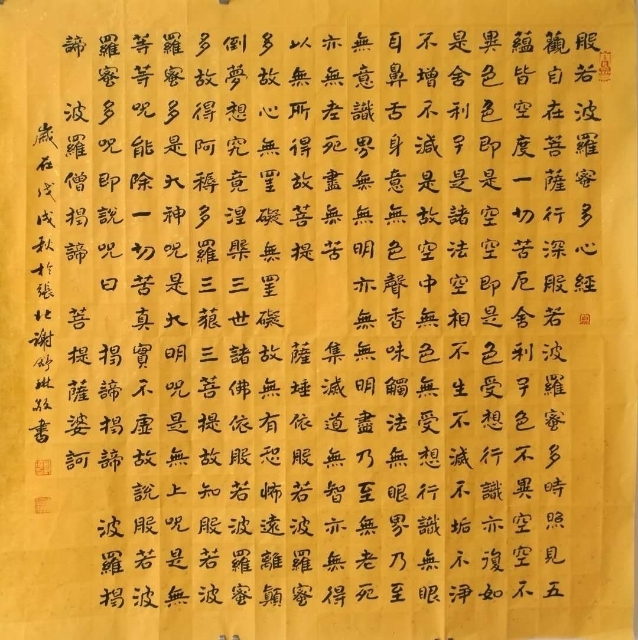 般若波羅蜜多心經
觀自在菩薩行深般若波羅蜜多時照見五
蘊皆空度一切苦厄舍利子色不異空空不
異色色即是空空即是色受想行識亦復如
是舍利子是諸法空相不生不滅不垢不淨
不增不減是故空中無色無受想行識無眼
耳鼻舌身意無色聲香味觸法無眼界乃至
無意識界無無明亦無無明盡乃至無老死
亦無老死盡無苦集滅道無智亦無得
以無所得故菩提薩埵依般若波羅蜜
多故心無罣礙無罣礙故無有恐怖遠離顛
倒夢想究竟涅槃三世諸佛依般若波羅蜜
多故得阿耨多羅三藐三菩提故知般若波
羅蜜多是大神咒是大明咒是無上咒是無
等等咒能除一切苦真實不虛故說般若波
羅蜜多咒即說咒曰 揭諦揭諦 波羅揭
諦 波羅僧揭諦 菩提薩婆訶
歲在戊戌秋於張北謝舒琳敬書